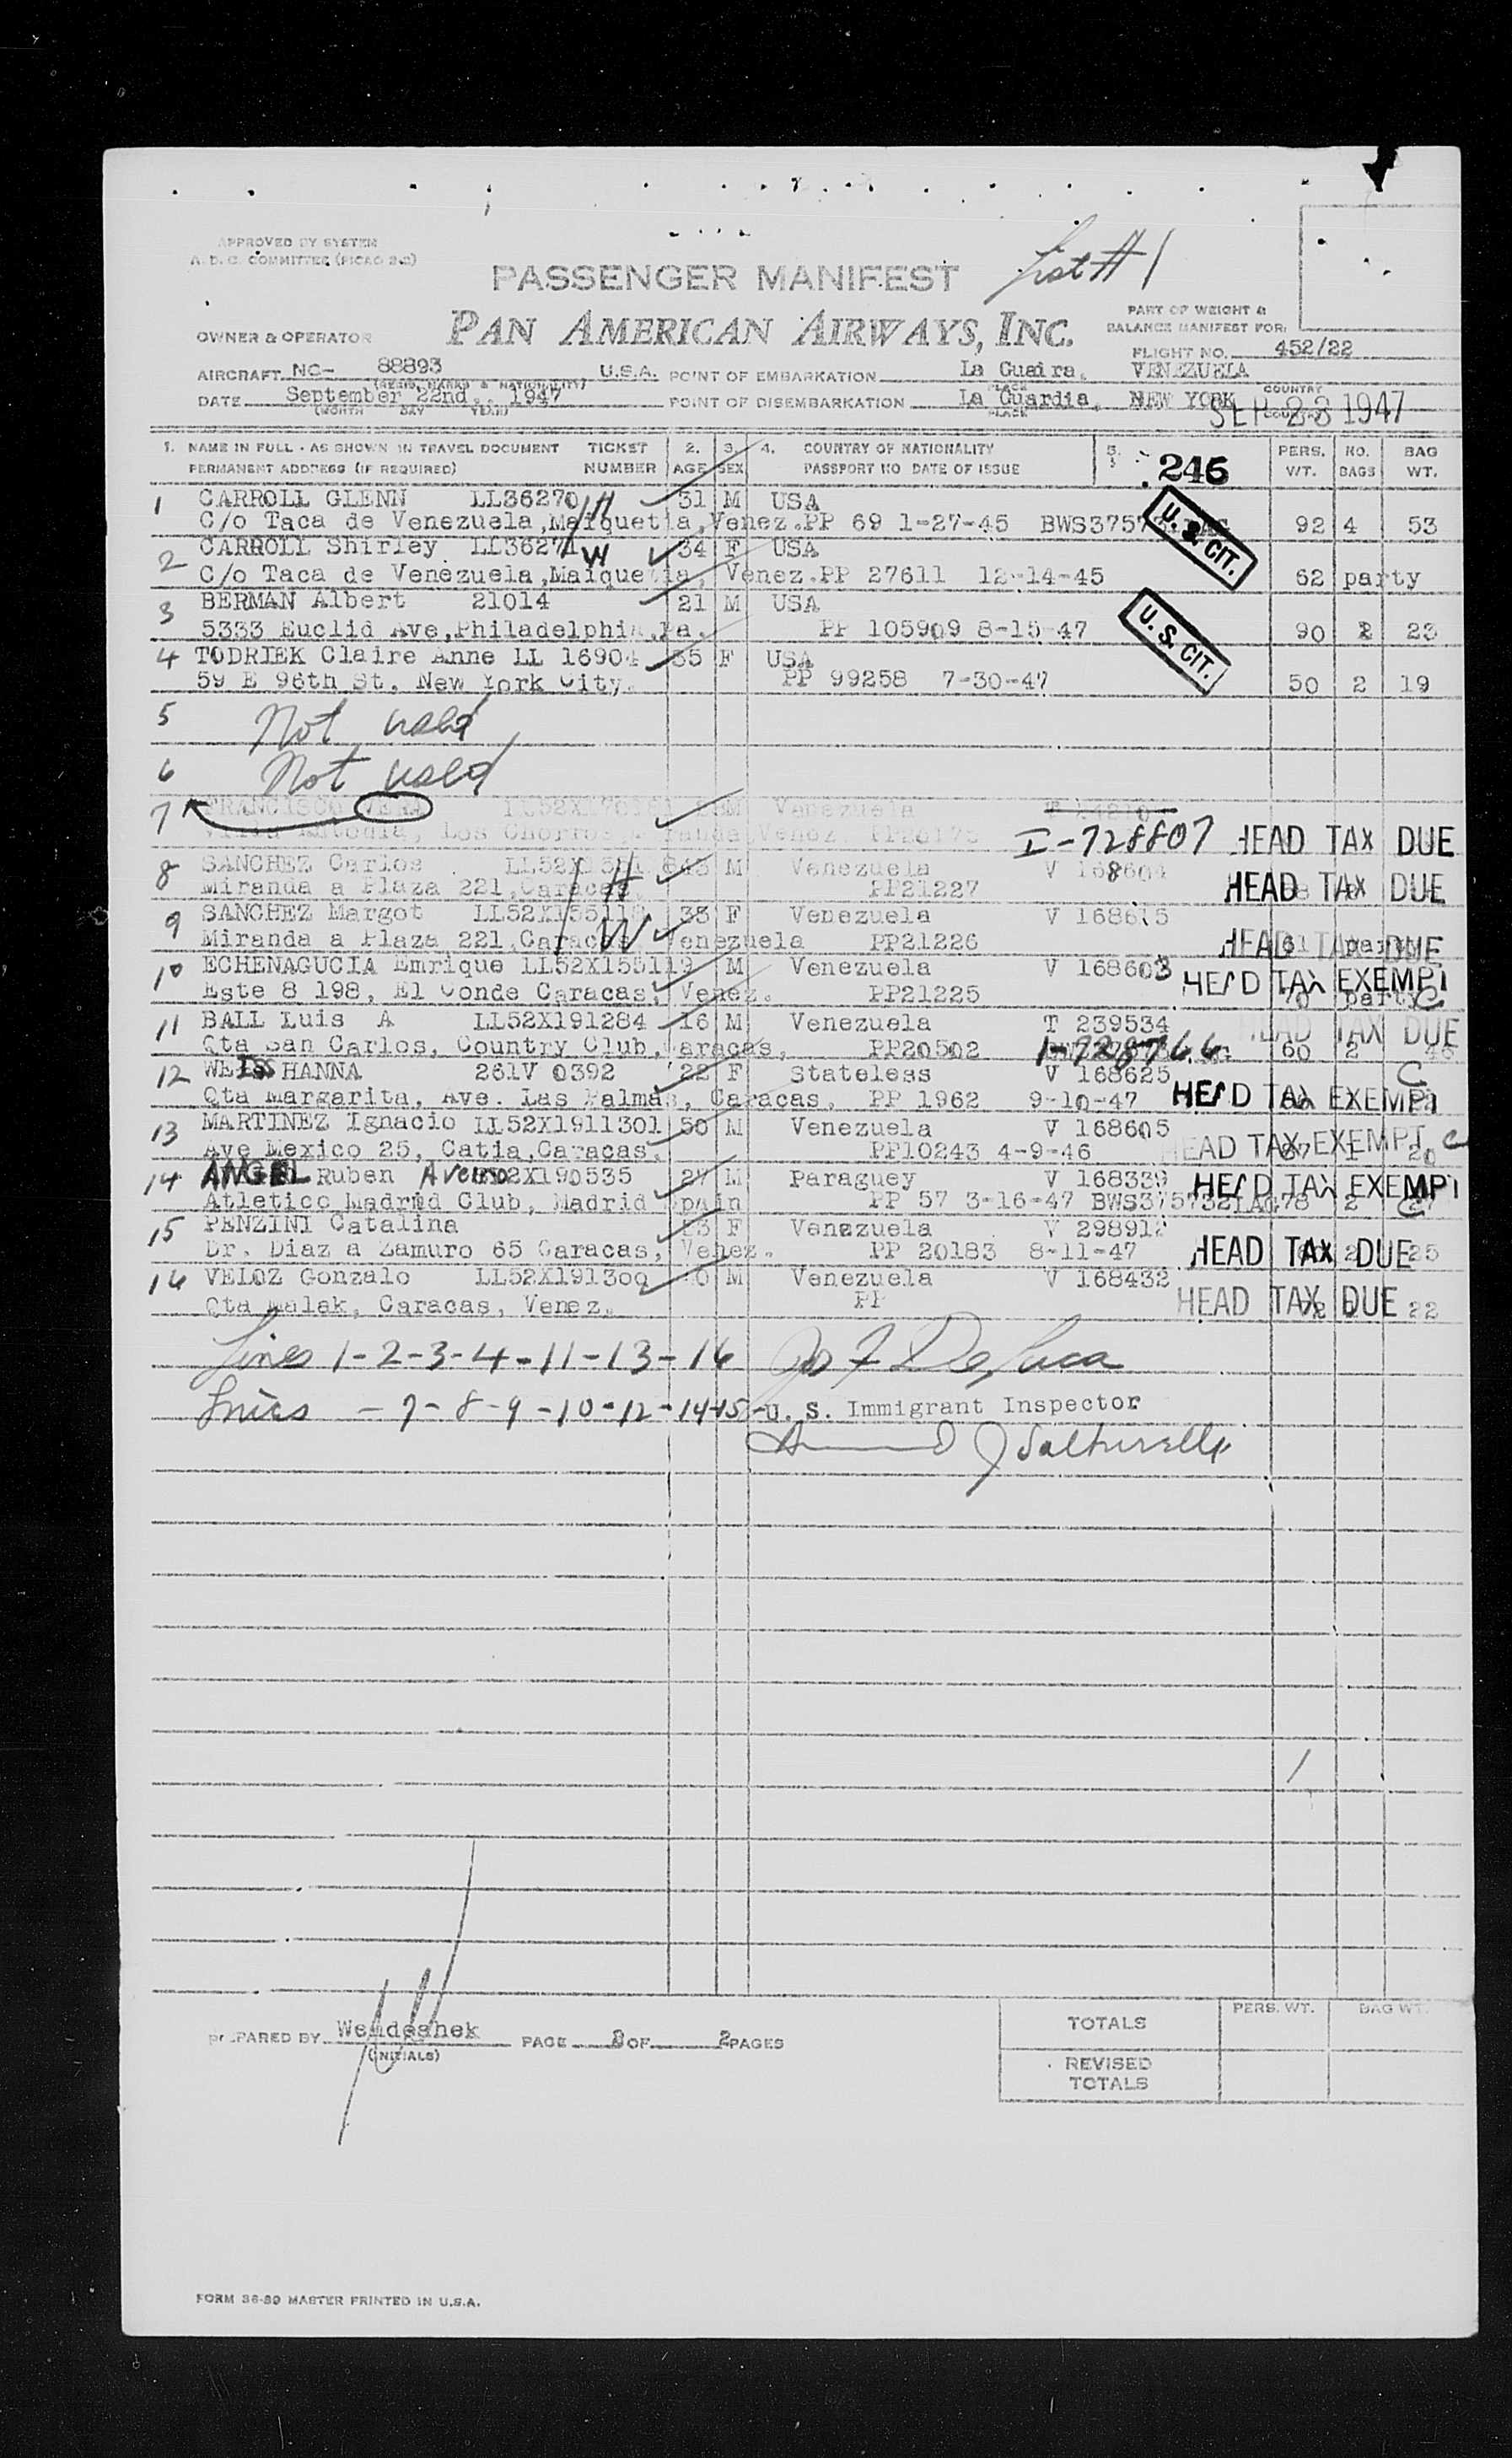 APPROVED BY SYSTEM
A. D. C. COMMITTEE (PICAO 2-2)
List # 1
PASSENGER MANIFEST
PAN AMERICAN AIRWAYS, INC.
PART OF WEIGHT &
BALANCE MANIFEST FOR:
OWNER & OPERATOR
FLIGHT NO. 452/22
AIRCRAFT NC- 88893 U.S.A. POINT OF EMBARKATION La Guaira, VENEZUELA
(REGIS. MARKS & NATIONALITY) PLACE COUNTRY
DATE September 22nd, 1947 POINT OF DISEMBARKATION La Guardia, NEW YORK
(MONTH DAY YEAR) PLACE COUNTRY
SEP 23 1947
1. NAME IN FULL - AS SHOWN IN TRAVEL DOCUMENT TICKET 2. 3. 4. COUNTRY OF NATIONALITY 5. PERS. NO. BAG
PERMANENT ADDRESS (IF REQUIRED) NUMBER AGE SEX PASSPORT NO DATE OF ISSUE 246 WT. BAGS WT.
1 CARROLL GLENN LL36270 H 31 M USA
C/o Taca de Venezuela,Maiquetia,Venez.PP 69 1-27-45 92 4 53
U. S. CIT.
2 CARROLL Shirley LL36271 W 34 F USA
C/o Taca de Venezuela,Maiquetia, Venez.PP 27611 12-14-45 62 party
3 BERMAN Albert 21014 21 M USA
5333 Euclid Ave,Philadelphia,Pa. PP 105909 8-15-47 90 2 23
U. S. CIT.
4 TODRIEK Claire Anne LL 16904 35 F USA
59 E 96th St, New York City. PP 99258 7-30-47 50 2 19
5 Not used
6 Not used
7 FRANCISCO VERA M Venezuela
Los Chorros, Miranda Venez I-728807 HEAD TAX DUE
8 SANCHEZ Carlos H M Venezuela V 168604
Miranda a Plaza 221,Caracas, PP21227 HEAD TAX DUE
9 SANCHEZ Margot W 33 F Venezuela V 168615
Miranda a Plaza 221,Caracas Venezuela PP21226 HEAD TAX DUE
10 ECHENAGUCIA Emrique LL52X155119 M Venezuela V 168603
Este 8 198, El Conde Caracas, Venez. PP21225 HEAD TAX EXEMPT party C
11 BALL Luis A LL52X191284 16 M Venezuela T 239534 HEAD TAX DUE
Qta San Carlos, Country Club,Caracas, PP20502 1-728766 60 2
12 WEISS HANNA 261V 0392 22 F Stateless V 168625 C
Qta Margarita, Ave. Las Palmas, Caracas. PP 1962 9-10-47 HEAD TAX EXEMPT
13 MARTINEZ Ignacio LL52X1911301 50 M Venezuela V 168605
Ave Mexico 25, Catia,Caracas. PP10243 4-9-46 HEAD TAX EXEMPT C 20
14 ANGEL Ruben 27 M Paraguey V 168339 HEAD TAX EXEMPT
Atletico Madrid Club, Madrid Spain PP 57 3-16-47 78 2 C
15 PENZINI Catalina 23 F Venezuela V 298912
Dr. Diaz a Zamuro 65 Caracas, Venez. PP 20183 8-11-47 HEAD TAX DUE 25
16 VELOZ Gonzalo LL52X191300 M Venezuela V 168432
Qta Malak, Caracas, Venez. PP HEAD TAX DUE 22
Lines 1-2-3-4-11-13-16 Jos F DeLuca
Lines - 7-8-9-10-12-14-15- U. S. Immigrant Inspector
PREPARED BY Wendeshek PAGE OF 2 PAGES
(INITIALS)
PERS. WT. BAG WT.
TOTALS
REVISED
TOTALS
FORM 36-80 MASTER PRINTED IN U.S.A.